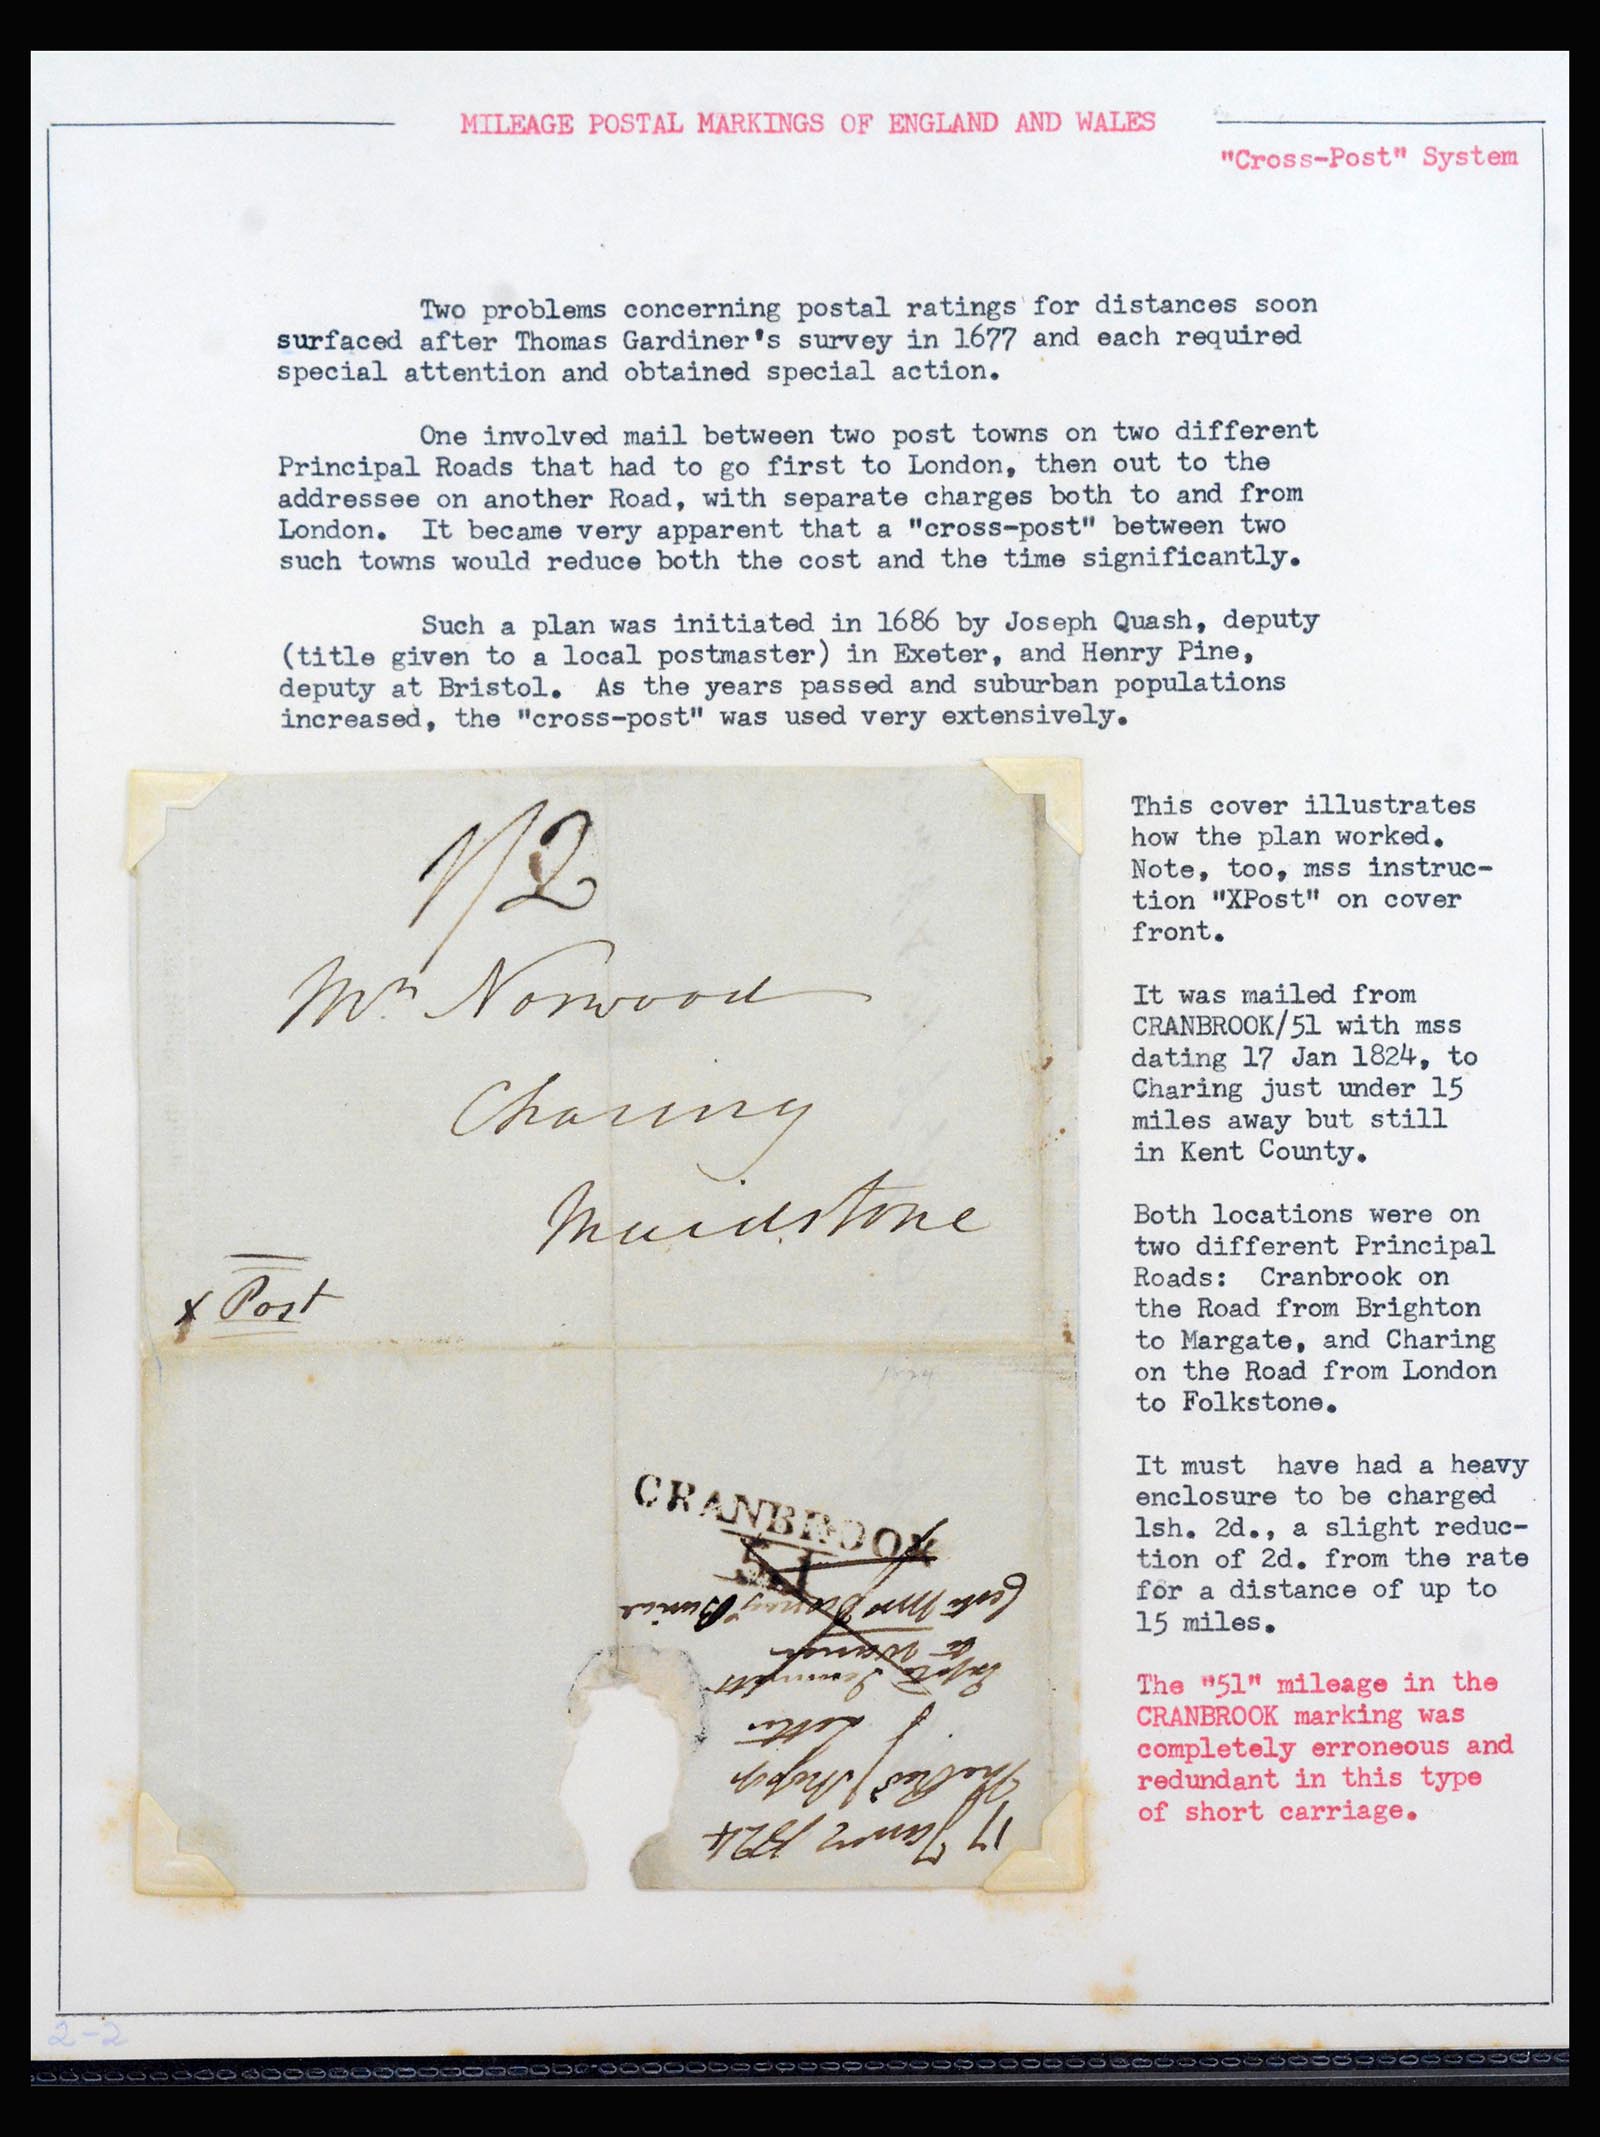 MILEAGE POSTAL MARKINGS OF ENGLAND AND WALES
"Cross-Post" System
Two problems concerning postal ratings for distances soon
surfaced after Thomas Gardiner's survey in 1677 and each required
special attention and obtained special action.
One involved mail between two post towns on two different
Principal Roads that had to go first to London, then out to the
addressee on another Road, with separate charges both to and from
London. It became very apparent that a "cross-post" between two
such towns would reduce both the cost and the time significantly.
Such a plan was initiated in 1686 by Joseph Quash, deputy
(title given to a local postmaster) in Exeter, and Henry Pine,
deputy at Bristol. As the years passed and suburban populations
increased, the "cross-post" was used very extensively.
1/2
Mr. Norwood
Charing
Maidstone
x Post
1824
CRANBROOK
51
17 Janry 1824
Letter
This cover illustrates
how the plan worked.
Note, too, mss instruc-
tion "XPost" on cover
front.
It was mailed from
CRANBROOK/51 with mss
dating 17 Jan 1824, to
Charing just under 15
miles away but still
in Kent County.
Both locations were on
two different Principal
Roads: Cranbrook on
the Road from Brighton
to Margate, and Charing
on the Road from London
to Folkstone.
It must have had a heavy
enclosure to be charged
1sh. 2d., a slight reduc-
tion of 2d. from the rate
for a distance of up to
15 miles.
The "51" mileage in the
CRANBROOK marking was
completely erroneous and
redundant in this type
of short carriage.
2-2